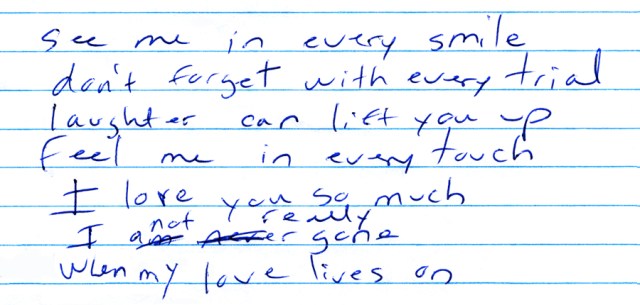 see me in every smile
don't forget with every trial
laughter can lift you up
feel me in every touch
I love you so much
not really
I am never gone
when my love lives on